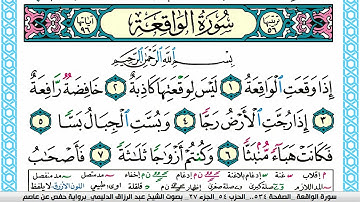 سُورَةُ الوَاقِعَةِ
بِسْمِ اللَّهِ الرَّحْمَٰنِ الرَّحِيمِ
إِذَا وَقَعَتِ الْوَاقِعَةُ ١ لَيْسَ لِوَقْعَتِهَا كَاذِبَةٌ ٢ خَافِضَةٌ رَّافِعَةٌ
٣ إِذَا رُجَّتِ الْأَرْضُ رَجًّا ٤ وَبُسَّتِ الْجِبَالُ بَسًّا ٥
فَكَانَتْ هَبَاءً مُّنۢبَثًّا ٦ وَكُنتُمْ أَزْوَاجًا ثَلَاثَةً ٧ فَأَصْحَابُ
سورة الواقعة - الصفحة ٥٣٤ - الحزب ٥٤ - الجزء ٢٧ بصوت الشيخ عبد الرزاق الدليمي - برواية حفص عن عاصم